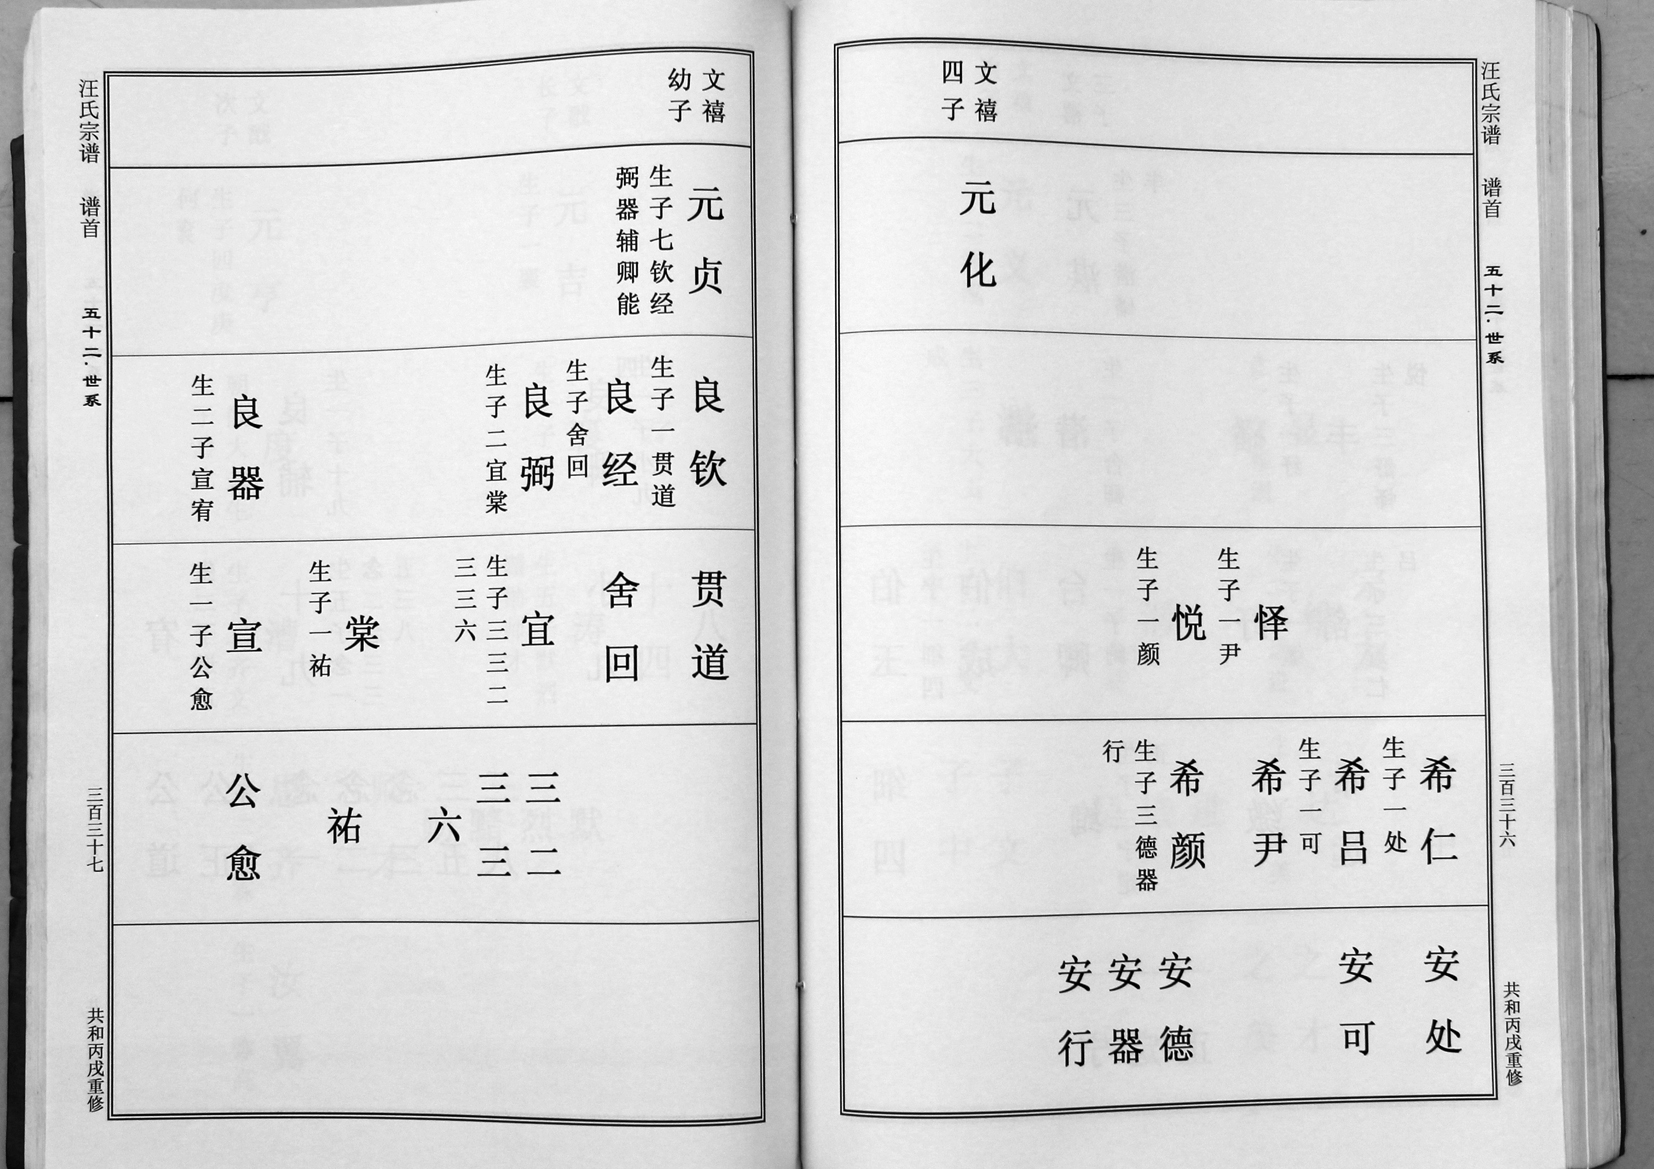 汪氏宗谱
谱首
五十二·世系
三百三十六
共和丙戌重修
文禧
四子
元化
怿
生子一尹
悦
生子一颜
希仁
生子一处
希吕
生子一可
希尹
希颜
生子三德器
行
安处
安可
安德
安器
安行
文禧
幼子
元贞
生子七钦经
弼器辅卿能
良钦
生子一贯道
良经
生子舍回
良弼
生子二宜棠
良器
生二子宣宥
贯道
舍回
宜
生子三三二
三三六
棠
生子一祐
宣
生一子公愈
三二
三三
六
祐
公愈
汪氏宗谱
谱首
五十二·世系
三百三十七
共和丙戌重修